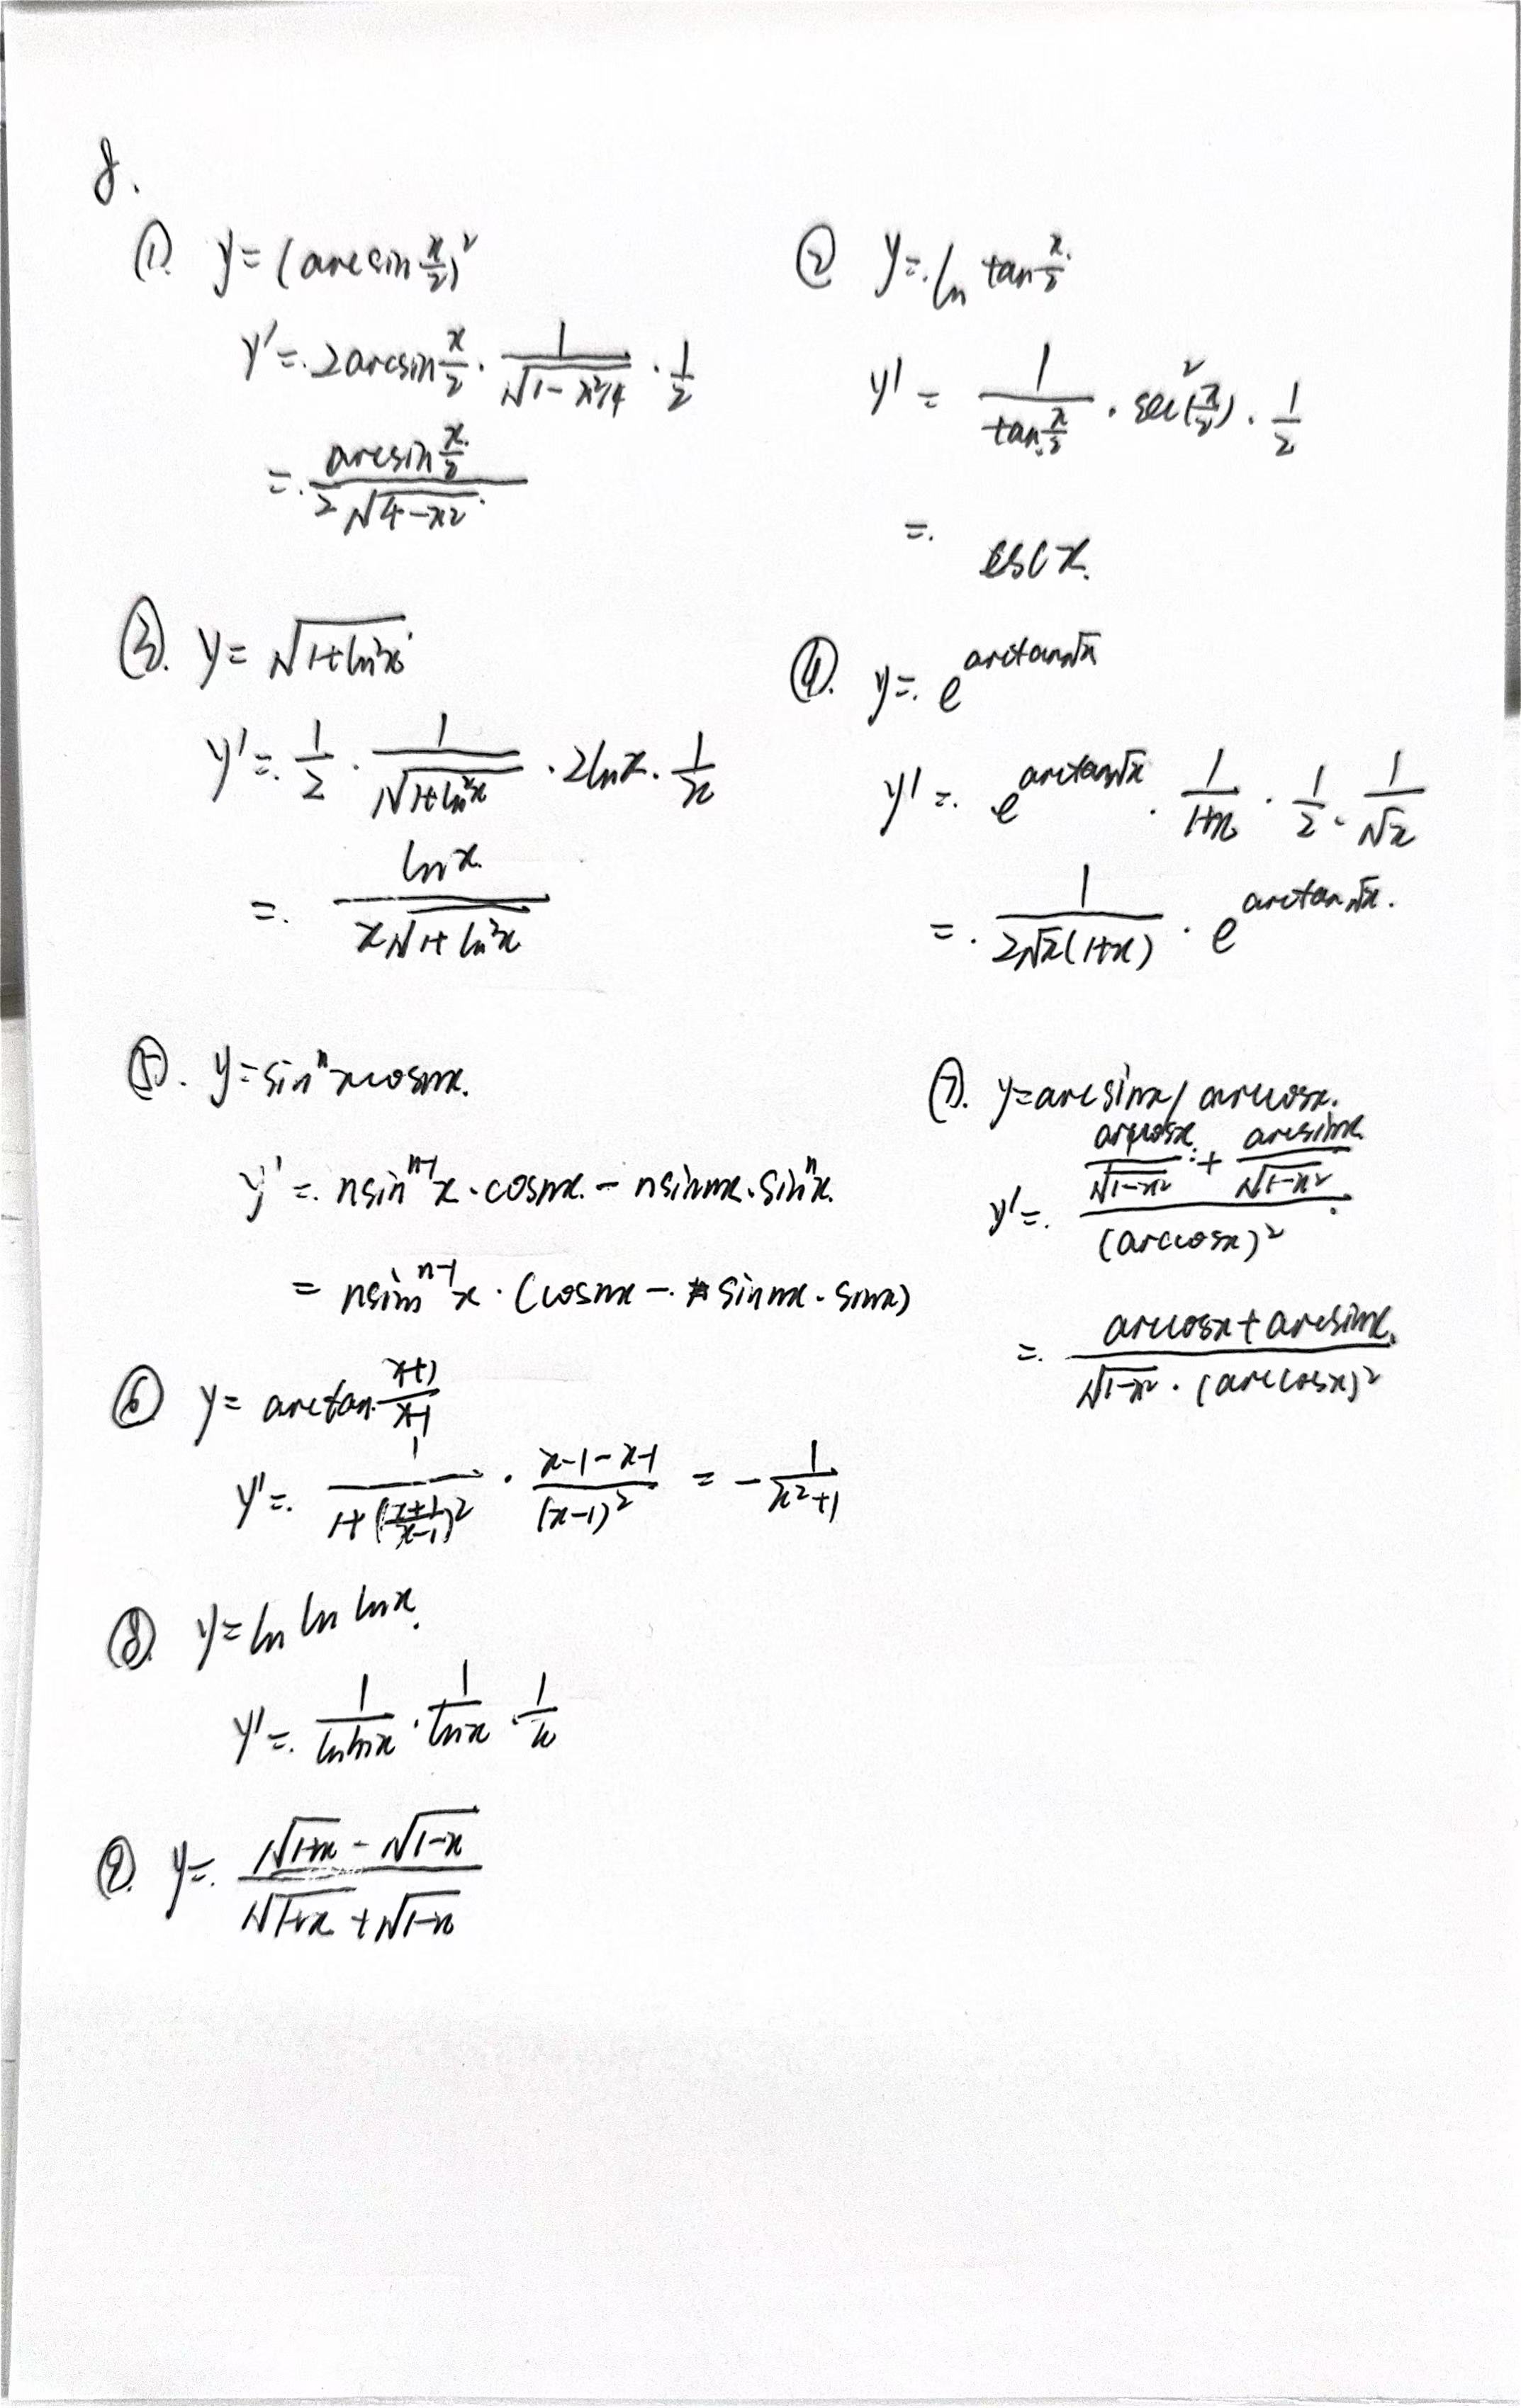 8.
①. y=(arcsin x/2)²
y'=. 2arcsin x/2 · 1/√(1-x²/4) · 1/2
=. arcsin x/2 / 2√(4-x²)
② y=. ln tan x/2
y' = 1/(tan x/2) · sec²(x/2) · 1/2
=. cscx.
③. y= √(1+ln²x)
y'=. 1/2 · 1/√(1+ln²x) · 2lnx · 1/x
=. lnx / x√(1+ln²x)
④. y=. e^(arctan√x)
y' =. e^(arctan√x) · 1/(1+x) · 1/2 · 1/√x
=. 1/(2√x(1+x)) · e^(arctan√x).
⑤. y=sinⁿxcosnx.
y' =. nsinⁿ⁻¹x · cosnx. - nsinnx · sinⁿx.
= nsinⁿ⁻¹x · (cosnx - sinnx · sinx)
⑥ y= arctan (x+1)/(x-1)
y'=. 1/(1+((x+1)/(x-1))²) · (x-1-x-1)/(x-1)² = - 1/(x²+1)
⑦. y=arcsinx/arccosx.
y'=. (arccosx/√(1-x²) + arcsinx/√(1-x²)) / (arccosx)²
=. (arccosx+arcsinx) / (√(1-x²) · (arccosx)²)
⑧. y=ln ln lnx.
y'=. 1/lnlnx · 1/lnx · 1/x
⑨. y=. (√(1+x) - √(1-x)) / (√(1+x) + √(1-x))